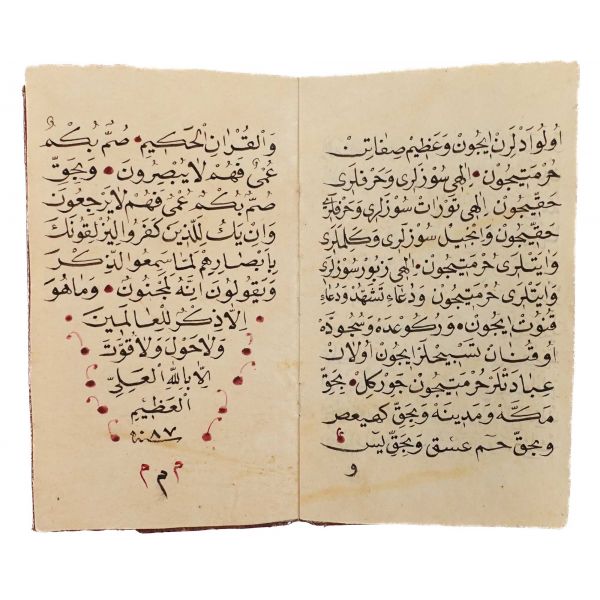 اولو ادلرن ايچون وعظيم صفاتن
حرمتيچون الهى سوزلرى وحرفلرى
حقيچون الهى تورات سوزلرى وحرفلرى
حقيچون وانجيل سوزلرى وكلملرى
وايتلرى حرمتيچون الهى زبور سوزلرى
وايتلرى حرمتيچون ودعاء تشهد ودعاء
قنوت ايچون وركوعده وسجوده
اوقنان تسبيحلر ايچون اولان
عبادتلر حرمتيچون جوركل بحق
مكه ومدينه وبحق كهيعص
وبحق حم عسق وبحق يس
و
والقران الحكيم صم بكم
عمى فهم لا يبصرون وبحق
صم بكم عمى فهم لا يرجعون
وان يك للذين كفروا ليزلقونك
بابصارهم لما سمعوا الذكر
ويقولون انه لمجنون وما هو
الا ذكر للعالمين
ولا حول ولا قوت
الا بالله العلى
العظيم
سنه ٨٧
م م م